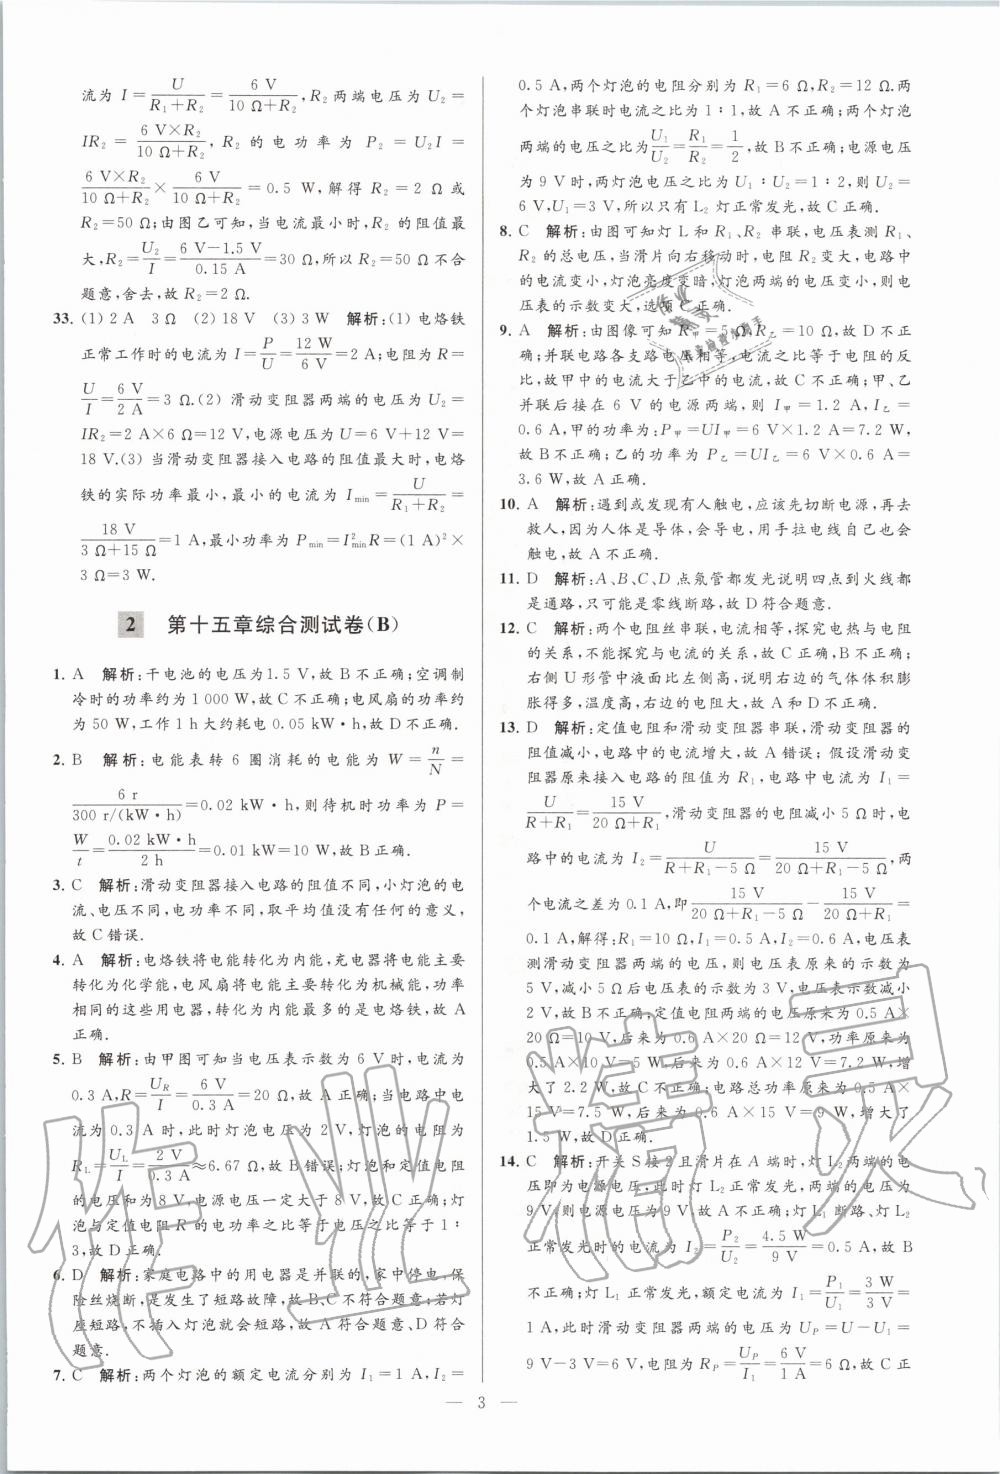 流为 I=U/(R₁+R₂)=6 V/(10 Ω+R₂),R₂两端电压为 U₂=
IR₂=6 V×R₂/(10 Ω+R₂),R₂ 的电功率为 P₂=U₂I=
6 V×R₂/(10 Ω+R₂)×6 V/(10 Ω+R₂)=0.5 W,解得 R₂=2 Ω 或
R₂=50 Ω;由图乙可知,当电流最小时,R₂ 的阻值最
大,R₂=U₂/I=(6 V-1.5 V)/0.15 A=30 Ω,所以 R₂=50 Ω不合
题意,舍去,故 R₂=2Ω.
33. (1) 2 A 3 Ω (2) 18 V (3) 3 W 解析:(1) 电烙铁
正常工作时的电流为 I=P/U=12 W/6 V=2 A;电阻为 R=
U/I=6 V/2 A=3 Ω.(2) 滑动变阻器两端的电压为 U₂=
IR₂=2 A×6 Ω=12 V,电源电压为 U=6 V+12 V=
18 V.(3) 当滑动变阻器接入电路的阻值最大时,电烙
铁的实际功率最小,最小的电流为 Imin=U/(R₁+R₂)=
18 V/(3 Ω+15 Ω)=1 A,最小功率为 Pmin=I²minR=(1 A)²×
3 Ω=3 W.
2 第十五章综合测试卷(B)
1. A 解析:干电池的电压为1.5 V,故 B 不正确;空调制
冷时的功率约为 1 000 W,故 C 不正确;电风扇的功率约
为 50 W,工作 1 h大约耗电 0.05 kW·h,故 D 不正确.
2. B 解析:电能表转 6 圈消耗的电能为 W=n/N=
6 r/300 r/(kW·h)=0.02 kW·h,则待机时功率为 P=
W/t=0.02 kW·h/2 h=0.01 kW=10 W,故 B 正确.
3. C 解析:滑动变阻器接入电路的阻值不同,小灯泡的电
流、电压不同,电功率不同,取平均值没有任何的意义,
故 C 错误.
4. A 解析:电烙铁将电能转化为内能,充电器将电能主要
转化为化学能,电风扇将电能主要转化为机械能,功率
相同的这些用电器,转化为内能最多的是电烙铁,故 A
正确.
5. B 解析:由甲图可知当电压表示数为 6 V 时,电流为
0.3 A,R=UR/I=6 V/0.3 A=20 Ω,故 A 正确;当电路中电
流为 0.3 A 时,此时灯泡电压为 2 V,灯泡的电阻为
RL=UL/I=2 V/0.3 A≈6.67 Ω,故 B 错误;灯泡和定值电阻
的电压和为 8 V,电源电压一定大于 8 V,故 C 正确;灯
泡与定值电阻 R 的电功率之比等于电压之比等于 1∶
3,故 D 正确.
6. D 解析:家庭电路中的用电器是并联的,家中停电,保
险丝烧断,是发生了短路故障,故 B、C 不符合题意;若灯
座短路,不插入灯泡就会短路,故 A 不符合题意、D 符合
题意.
7. C 解析:两个灯泡的额定电流分别为 I₁=1 A,I₂=
0.5 A,两个灯泡的电阻分别为 R₁=6 Ω,R₂=12 Ω.两
个灯泡串联时电流之比为 1∶1,故 A 不正确;两个灯泡
两端的电压之比为U₁/U₂=R₁/R₂=1/2,故 B 不正确;电源电压
为 9 V 时,两灯泡电压之比为 U₁∶U₂=1∶2,则 U₂=
6 V,U₁=3 V,所以只有 L₂ 灯正常发光,故 C 正确.
8. C 解析:由图可知灯 L 和 R₁、R₂ 串联,电压表测 R₁、
R₂ 的总电压,当滑片向右移动时,电阻变大,电路中
的电流变小,灯泡亮度变暗,灯泡两端的电压变小,则电
压表的示数变大,选项 C 正确.
9. A 解析:由图像可知 R甲=5 Ω,R乙=10 Ω,故 A 不正
确;并联电路各支路电压相等,电流之比等于电阻的反
比,故甲中的电流大于乙中的电流,故 C 正确;甲、乙
并联后接在 6 V 的电源两端,则 I甲=1.2 A,I乙=
0.6 A,甲的功率为:P甲=UI甲=6 V×1.2 A=7.2 W,
故 B 正确;乙的功率为 P乙=UI乙=6 V×0.6 A=
3.6 W,故 D 正确.
10. A 解析:遇到或发现有人触电,应该先切断电源,再去
救人,因为人体是导体,会导电,用手拉电线自己也会
触电,故 A 不正确.
11. D 解析:A、B、C、D 点氖管都发光说明四点到火线都
是通路,只可能是零线断路,故 D 符合题意.
12. C 解析:两个电阻丝串联,电流相等,探究电热与电阻
的关系,不能探究与电流的关系,故 C 正确、B 不正确;
右侧 U 形管中液面比左侧高,说明右边的气体体积膨
胀得多,温度高,右边的电阻大,故 A 和 D 不正确.
13. D 解析:定值电阻和滑动变阻器串联,滑动变阻器的
阻值减小,电路中的电流增大,故 A 错误;假设滑动变
阻器原来接入电路的阻值为 R₁,电路中电流为 I₁=
U/(R+R₁)=15 V/(20 Ω+R₁),滑动变阻器的电阻减小 5 Ω时,电
路中的电流为 I₂=U/(R+R₁-5 Ω)=15 V/(20 Ω+R₁-5 Ω),两
个电流之差为 0.1 A,即15 V/(20 Ω+R₁-5 Ω)-15 V/(20 Ω+R₁)=
0.1 A,解得:R₁=10 Ω,I₁=0.5 A,I₂=0.6 A,电压表
测滑动变阻器两端的电压,则电压表原来的示数为
5 V,减小 5 Ω后电压表的示数为 3 V,电压表示数减小
2 V,故 B 正确;定值电阻两端的电压原来为 0.5 A×
20 Ω=10 V,后来为 0.6 A×20 Ω=12 V,功率原来为
0.5 A×10 V=5 W,后来为 0.6 A×12 V=7.2 W,增
大了 2.2 W,故 C 正确;电路总功率原来为 0.5 A×
15 V=7.5 W,后来为 0.6 A×15 V=9 W,增大了
1.5 W,故 D 正确.
14. C 解析:开关 S接 2且滑片在 A 端时,灯 L₂两端的电
压即为电源电压,此时灯 L₂ 正常发光,电源电压为
9 V,则电源电压为 9 V 不变,故 A 正确;灯 L₁ 断路、灯 L₂